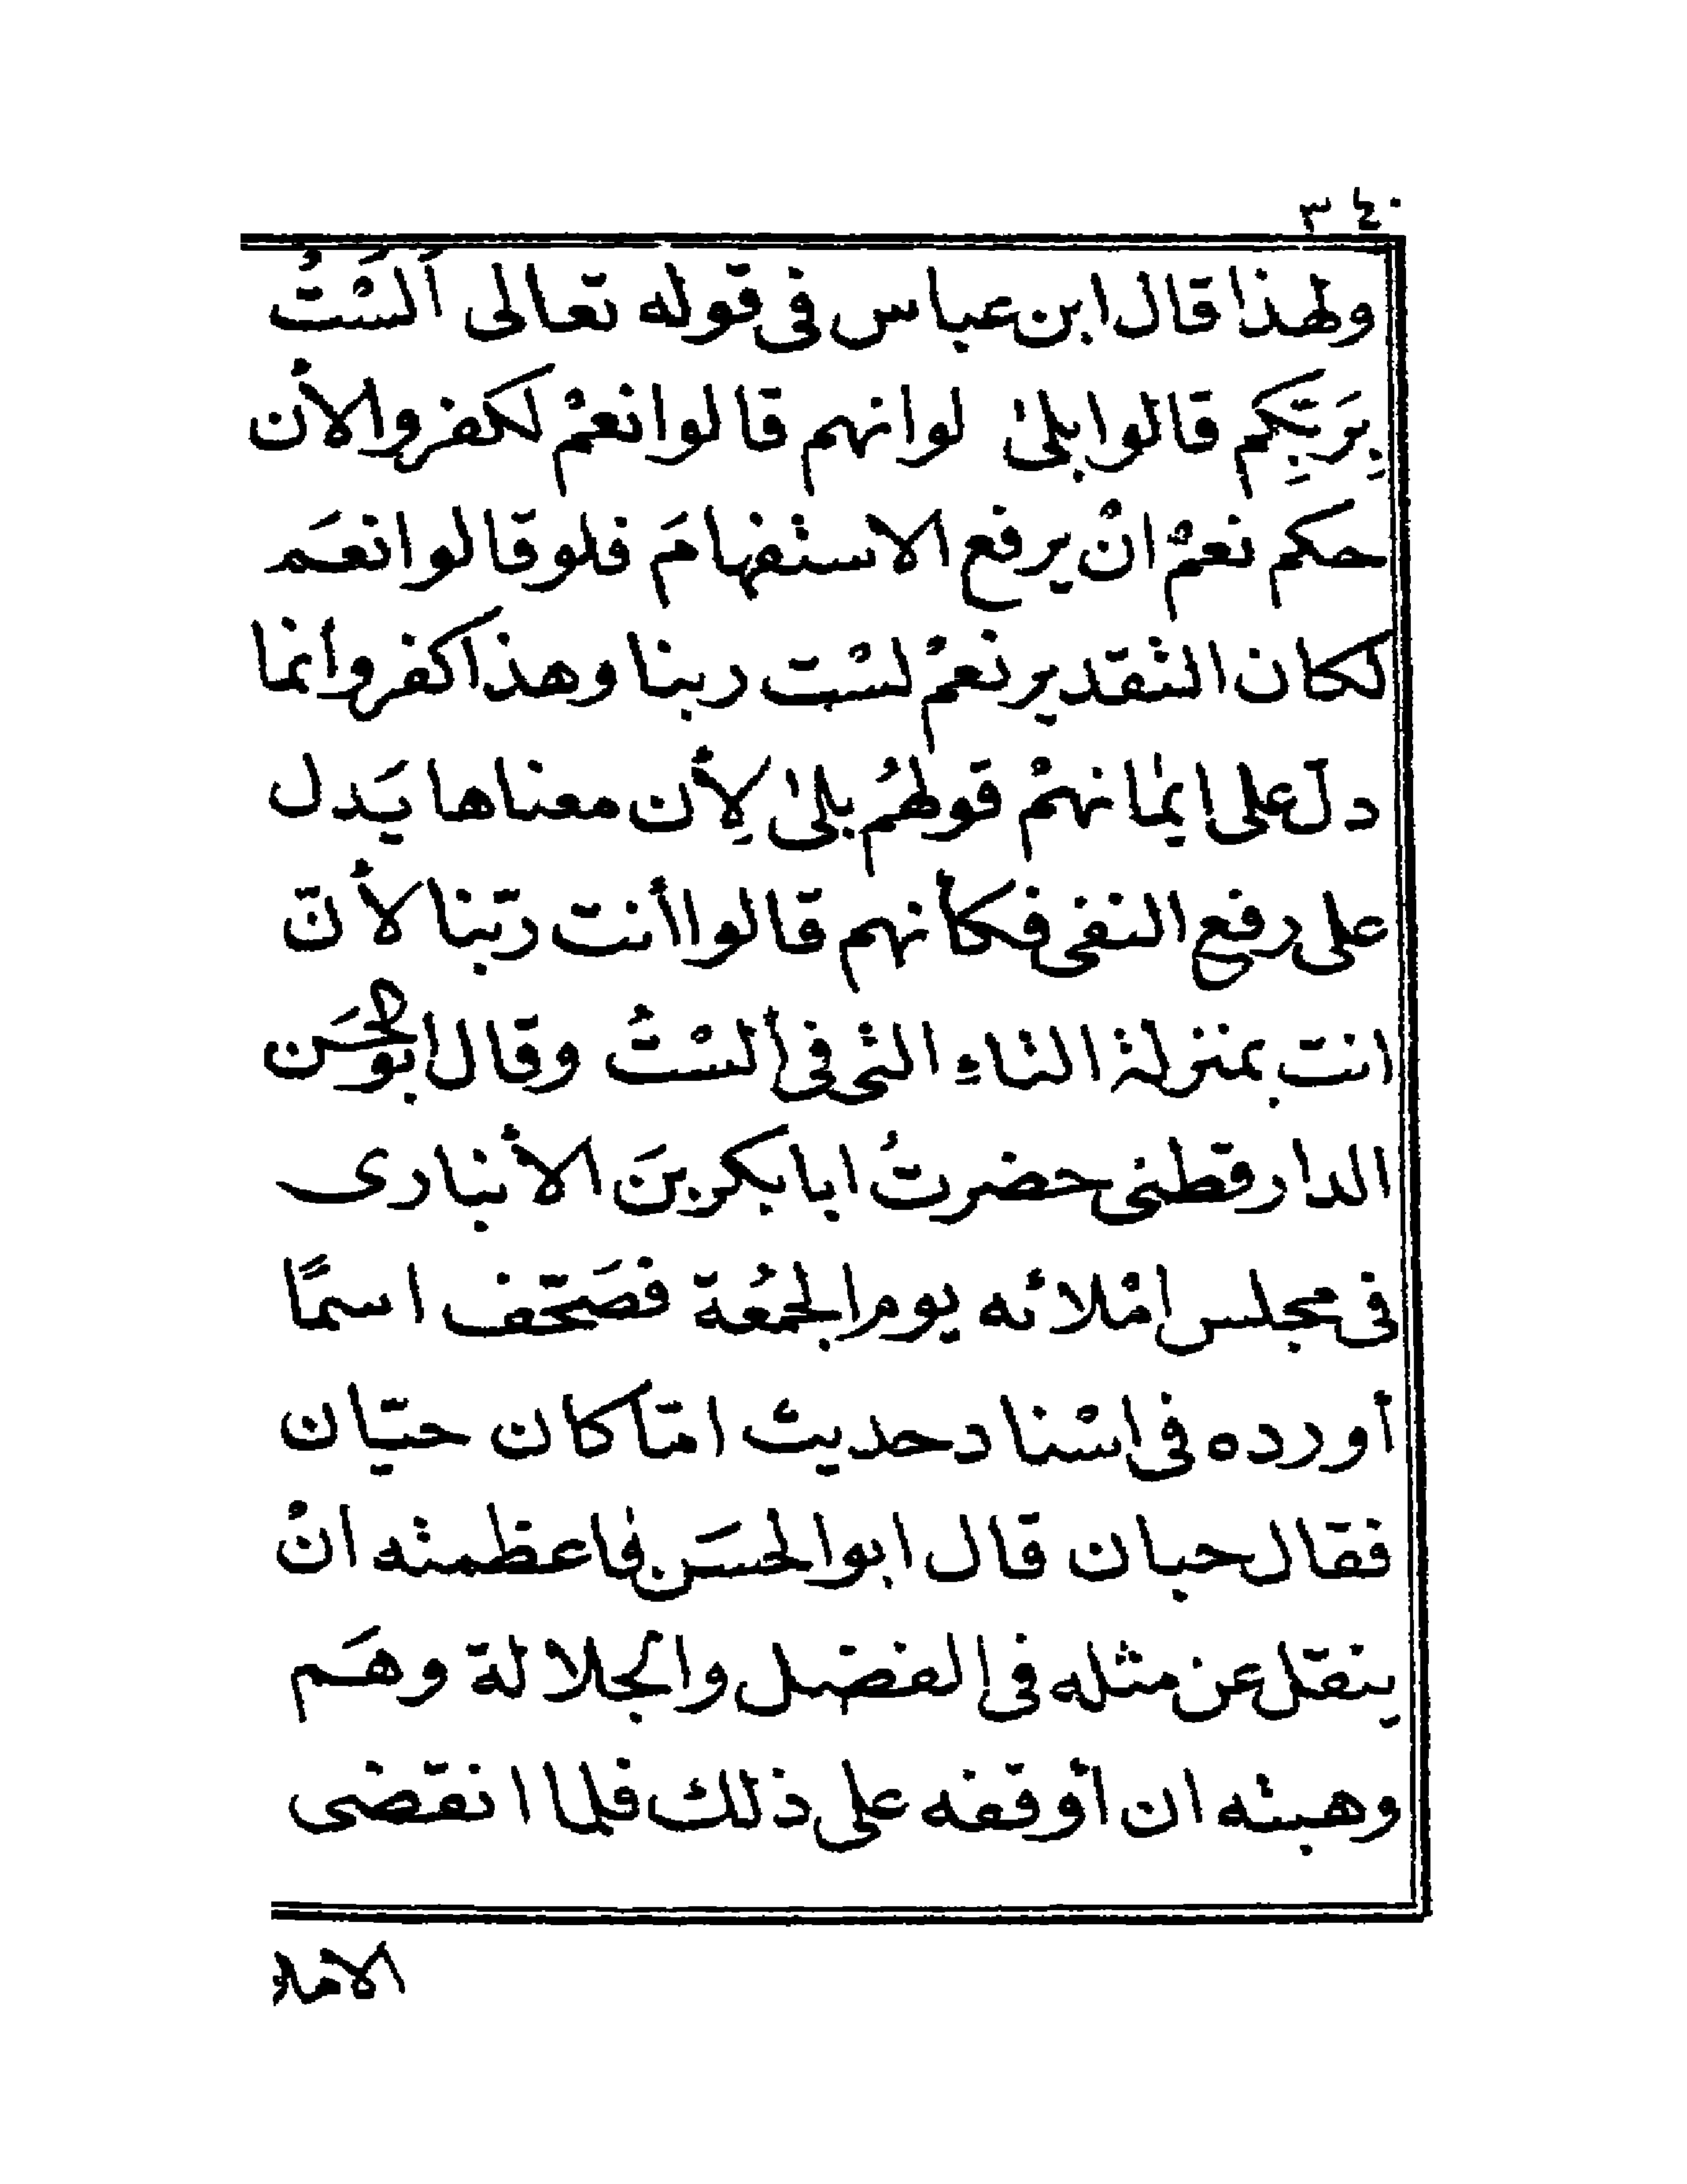 ٣٤٠
ولهذا قال ابن عباس فى قوله تعالى ألَسْتُ
بِرَبِّكم قالوا بلىٰ لو انهم قالوا نعمْ لكفروا لأن
حكم نعمْ انْ يرفع الاستفهامَ فلو قالوا نعَم
لكان التقدير نعمْ لسْت ربنا وهذا كفر وانما
دلّ على ايمٰانهمْ قولهُم بلىٰ لِأن معناها يَدل
على رفع النفى فكأنهم قالوا أنت ربّنا لأنّ
انت بمنزلة التاءِ التى فى ألسْتُ وقال ابو الحَسَن
الدارقطنى حضرتُ ابا بكر بنَ الأنبارى
فى مجلس امْلائه يوم الجمُعة فصَحّف اسمًا
أورده فى اسْناد حديث امّا كان حيّان
فقال حبان قال ابو الحسَن فاعظمته انْ
ينقل عن مثله فى الفضل والجلالة وهَم
وهبته ان أوقفه على ذلك فلما انقضى
الاملاء